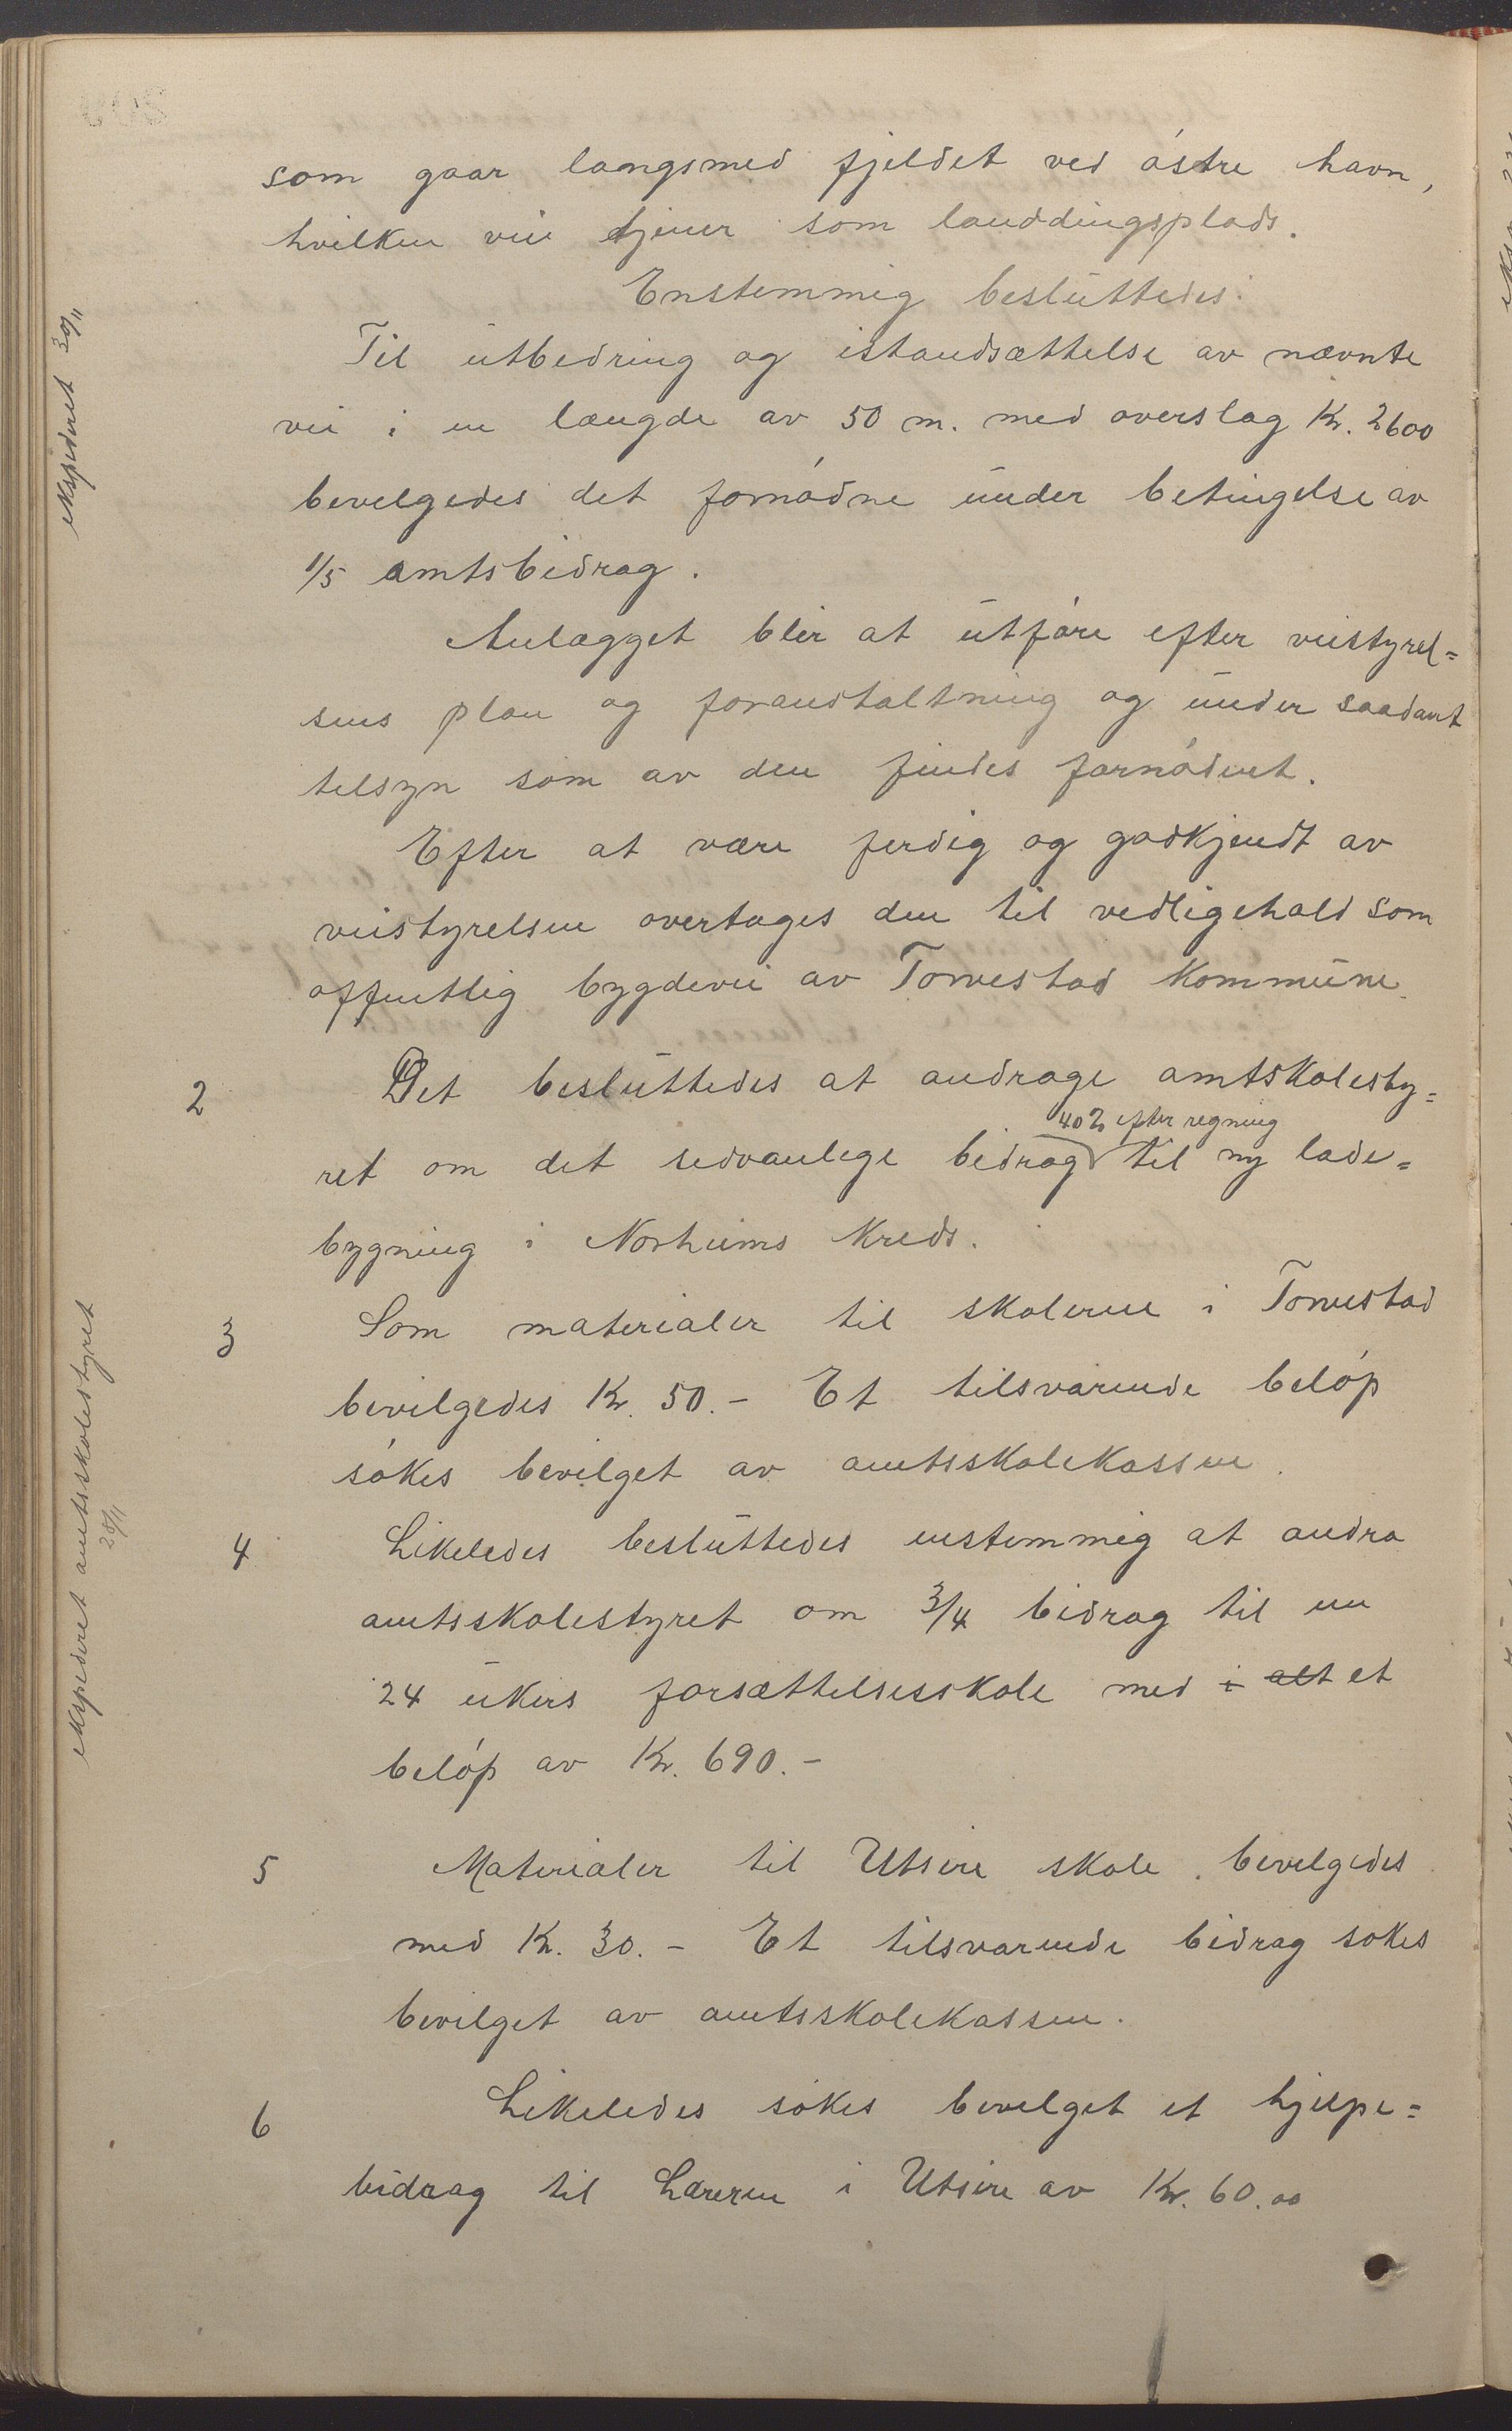 som gaar langsmed fjeldet ved østre havn,
hvilken vei tjener som landdingsplads.
Enstemmig besluttedes:
ekspederet 30/11
Til utbedring og istandsættelse av nævnte
vei i en længde av 50 m. med overslag Kr. 2600
bevilgedes det fornødne under betingelse av
1/5 amtsbidrag.
Anlægget blir at utføre efter veistyrel=
sens plan og foranstaltning og under saadant
tilsyn som av den findes fornødent.
Efter at være ferdig og godkjendt av
veistyrelsen overtages den til vedligehold som
offentlig bygdevei av Torvestad Kommune.
2 Det besluttedes at andrage amtskolesty=
40% efter regning
ret om det sedvanlige bidrag til ny lade=
bygning i Norheims Kreds.
ekspederet amtsskolestyret
28/11
3 Som materialer til skolerne i Torvestad
bevilgedes Kr. 50.- Et tilsvarende beløp
søkes bevilget av amtsskolekassen.
4 Likeledes besluttedes enstemmig at andra
amtsskolestyret om 3/4 bidrag til en
24 ukers forsættelsesskole med i alt et
beløp av Kr. 690.-
5 Materialer til Utsire skole bevilgedes
med Kr. 30.- Et tilsvarende bidrag søkes
bevilget av amtsskolekassen.
6 Likeledes søkes bevilget et hjelpe=
bidrag til Læreren i Utsire av Kr. 60.00